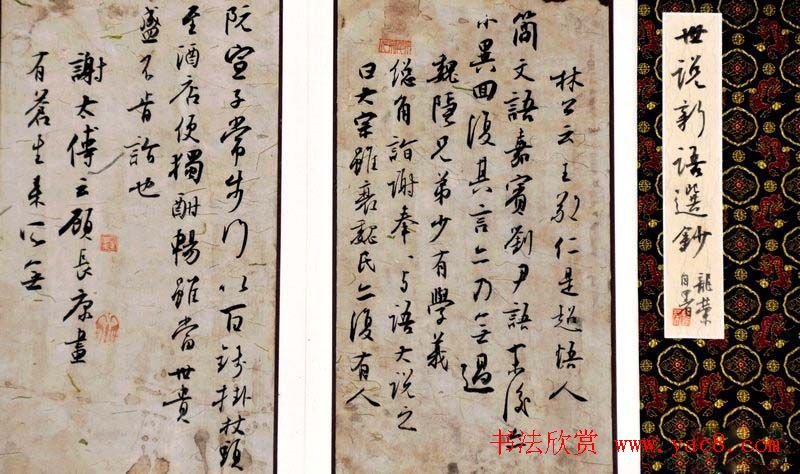 世说新语選鈔
龍榮
自署
林公云王敬仁是超悟人
簡文語嘉賓劉尹語末後亦
小異回復其言亦乃無過
魏隱兄弟少有學義
總角詣謝奉奉与語大说之
曰大宗雖衰魏氏已復有人
阮宣子常步行以百錢掛杖頭
至酒店便獨酣暢雖當世貴
盛不肯詣也
謝太傅云顧長康畫
有蒼生來所無
书法欣赏 www.yac8.com